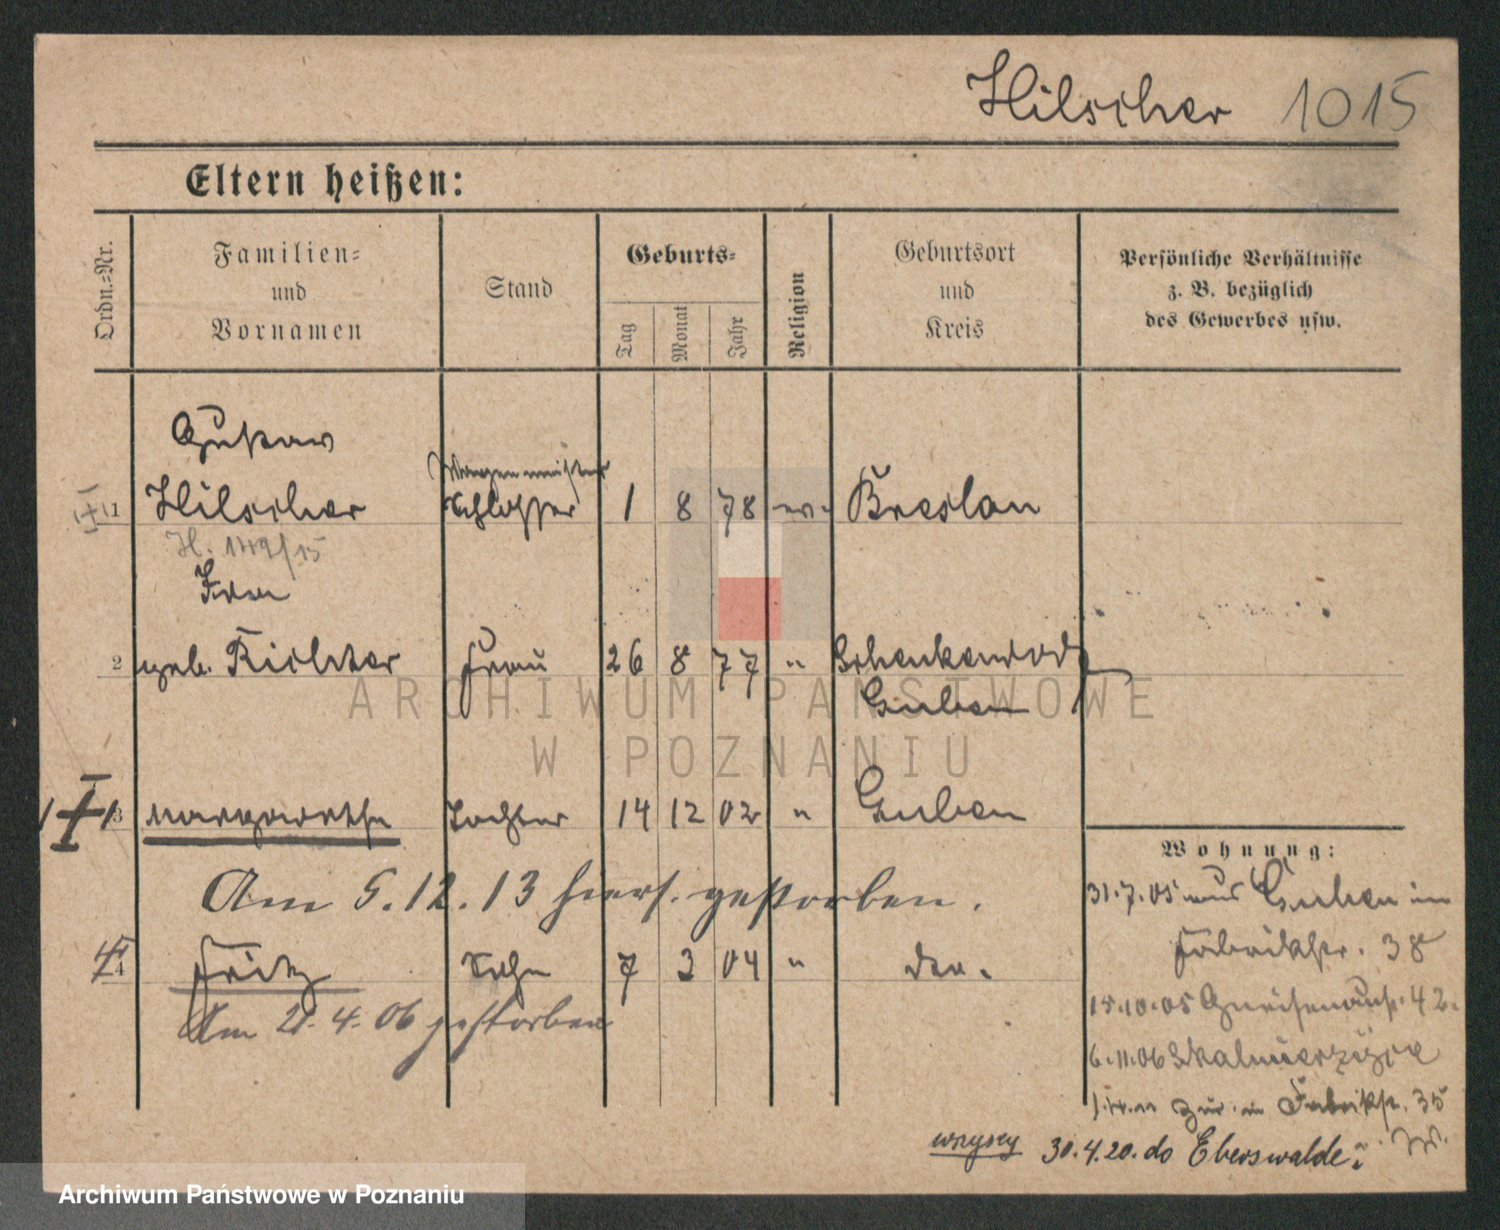 Hilscher 1015
Eltern heißen:
Ordn.=Nr.
Familien=
und
Vornamen
Stand
Geburts=
Tag
Monat
Jahr
Religion
Geburtsort
und
Kreis
Persönliche Verhältnisse
z. B. bezüglich
des Gewerbes usw.
Gustav
Wagenmeister
1 Hilscher Schlosser 1 8 78 ev. Breslau
Frau
2 geb. Richter Frau 26 8 77 " Schenkendorf
Guben
3 Margarethe Tochter 14 12 02 " Guben
Wohnung:
Am 5.12.13 hiers. gestorben.
31.7.05 aus Guben in
Fabrikstr. 38
4 Fritz Sohn 7 3 04 " do.
Am 21.4.06 gestorben
15.10.05 Gneisenaustr. 42.
6.11.06 Skalmierzyce
zur. in Fabrikstr. 35
wszyscy 30.4.20. do Eberswalde
ARCHIWUM PAŃSTWOWE
W POZNANIU
Archiwum Państwowe w Poznaniu